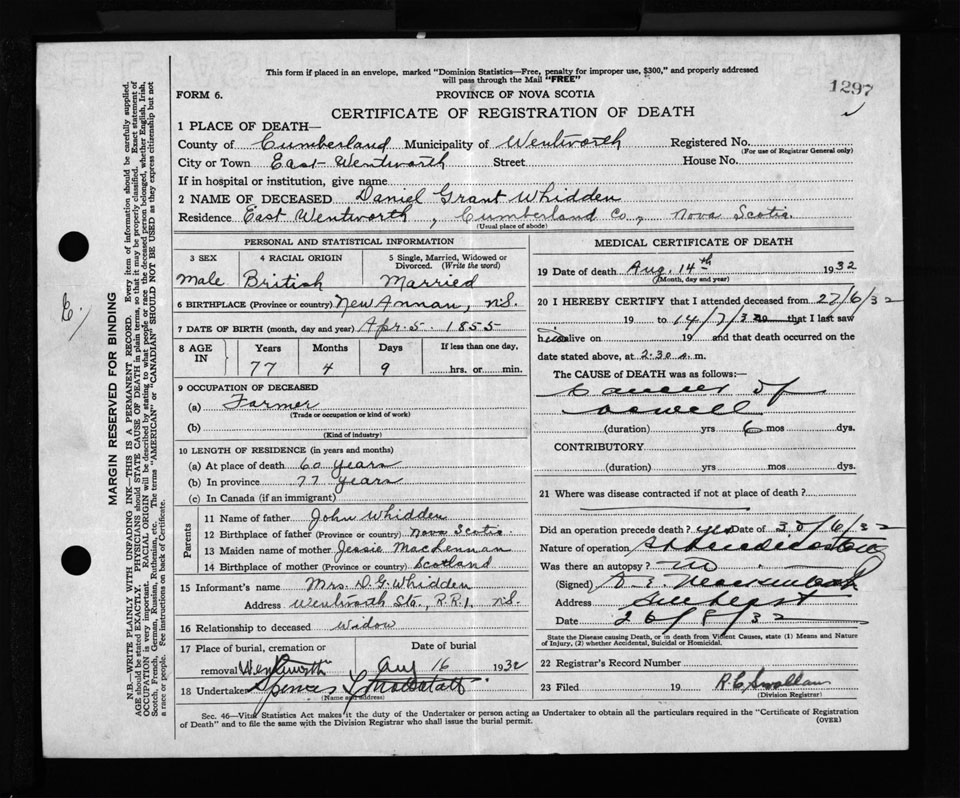 This form if placed in an envelope, marked "Dominion Statistics—Free, penalty for improper use, $300," and properly addressed
will pass through the Mail "FREE"
1297
FORM 6.
PROVINCE OF NOVA SCOTIA
CERTIFICATE OF REGISTRATION OF DEATH
1 PLACE OF DEATH—
County of Cumberland Municipality of Wentworth Registered No.
(For use of Registrar General only)
City or Town East Wentworth Street House No.
If in hospital or institution, give name
2 NAME OF DECEASED Daniel Grant Whidden
Residence East Wentworth, Cumberland Co., Nova Scotia
(Usual place of abode)
PERSONAL AND STATISTICAL INFORMATION
3 SEX 4 RACIAL ORIGIN 5 Single, Married, Widowed or
Divorced. (Write the word)
Male British Married
6 BIRTHPLACE (Province or country) New Annan, N.S.
7 DATE OF BIRTH (month, day and year) Apr. 5. 1855
8 AGE IN Years Months Days If less than one day,
77 4 9 hrs. or min.
9 OCCUPATION OF DECEASED
(a) Farmer
(Trade or occupation or kind of work)
(b)
(Kind of industry)
10 LENGTH OF RESIDENCE (in years and months)
(a) At place of death 60 years
(b) In province 77 years
(c) In Canada (if an immigrant)
Parents
11 Name of father John Whidden
12 Birthplace of father (Province or country) Nova Scotia
13 Maiden name of mother Jessie MacLennan
14 Birthplace of mother (Province or country) Scotland
15 Informant's name Mrs. D. G. Whidden
Address Wentworth Sta., R.R.1, N.S.
16 Relationship to deceased Widow
17 Place of burial, cremation or Date of burial
removal Wentworth Aug 16 1932
18 Undertaker Spencer
(Name and address)
MEDICAL CERTIFICATE OF DEATH
19 Date of death Aug. 14th 1932
(Month, day and year)
20 I HEREBY CERTIFY that I attended deceased from 27/6/32
19 to 14/7/32 19 that I last saw
him alive on 19 and that death occurred on the
date stated above, at 2.30 a.m.
The CAUSE of DEATH was as follows:
Cancer of
(duration) yrs 6 mos dys.
CONTRIBUTORY
(duration) yrs. mos. dys.
21 Where was disease contracted if not at place of death?
Did an operation precede death? yes Date of 30/6/32
Nature of operation
Was there an autopsy? no
(Signed)
Address Amherst
Date 26/8/32
State the Disease causing Death, or in death from Violent Causes, state (1) Means and Nature
of Injury, (2) whether Accidental, Suicidal or Homicidal.
22 Registrar's Record Number
23 Filed 19 R C Swallow
(Division Registrar)
Sec. 46—Vital Statistics Act makes it the duty of the Undertaker or person acting as Undertaker to obtain all the particulars required in the "Certificate of Registration
of Death" and to file the same with the Division Registrar who shall issue the burial permit. (OVER)
MARGIN RESERVED FOR BINDING
N.B.—WRITE PLAINLY WITH UNFADING INK—THIS IS A PERMANENT RECORD. Every item of information should be carefully supplied.
AGE should be stated EXACTLY. PHYSICIANS should STATE CAUSE OF DEATH in plain terms, so that it may be properly classified. Exact statement of
OCCUPATION is very important. RACIAL ORIGIN will be described by stating to what people or race the deceased person belonged, whether English, Irish,
Scotch, French, German, Russian, Ruthenian, etc. The terms "AMERICAN" or "CANADIAN" SHOULD NOT BE USED as they express citizenship but not
a race or people. See instructions on back of Certificate.